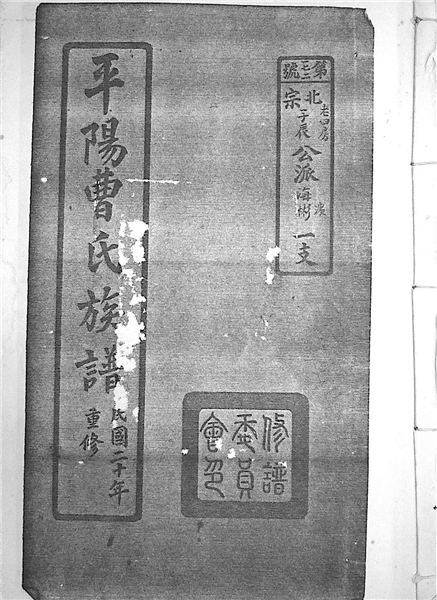 第 號
老四房
北宗
公派
海彬
濱
一支
修譜
委員
會印
平陽曹氏族譜
民國二十年
重修